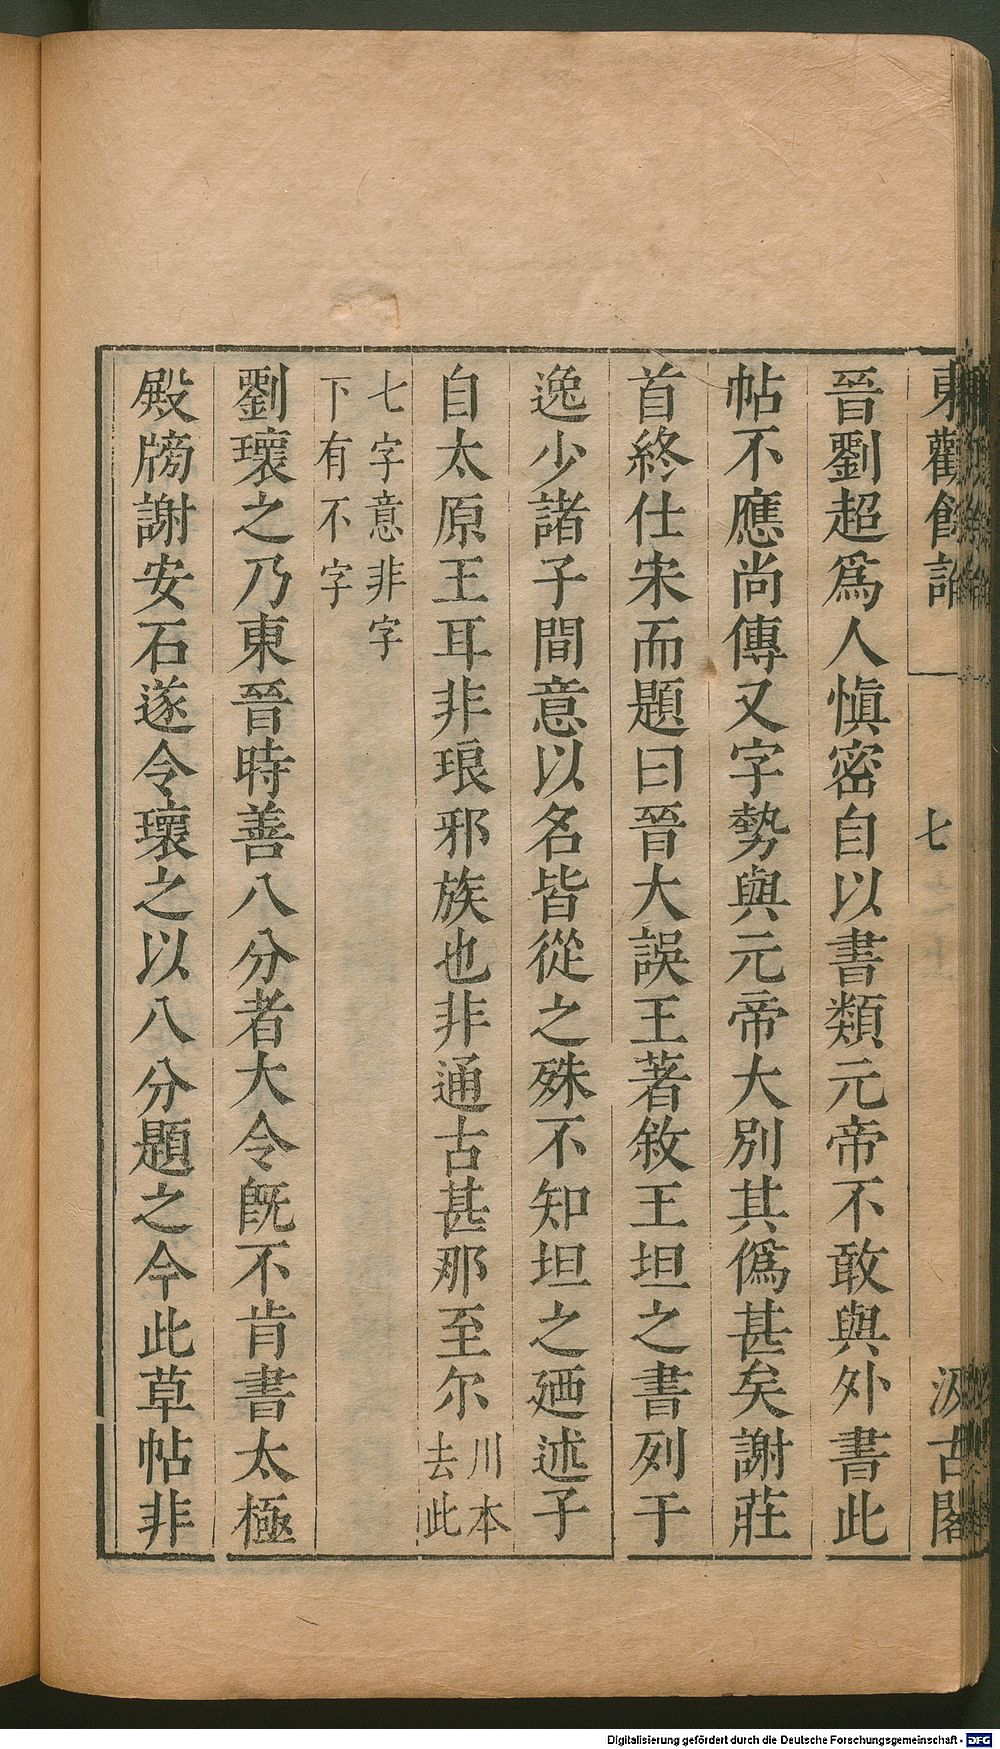 東觀餘論
七
汲古閣
晉劉超爲人愼密自以書類元帝不敢與外書此
帖不應尚傳又字勢與元帝大別其僞甚矣謝莊
首終仕宋而題曰晉大誤王著敘王坦之書列于
逸少諸子間意以名皆從之殊不知坦之廼述子
自太原王耳非琅邪族也非通古甚那至尔川本去此
七字意非字下有不字
劉瓌之乃東晉時善八分者大令旣不肯書太極
殿牓謝安石遂令瓌之以八分題之今此草帖非
Digitalisierung gefördert durch die Deutsche Forschungsgemeinschaft - DFG